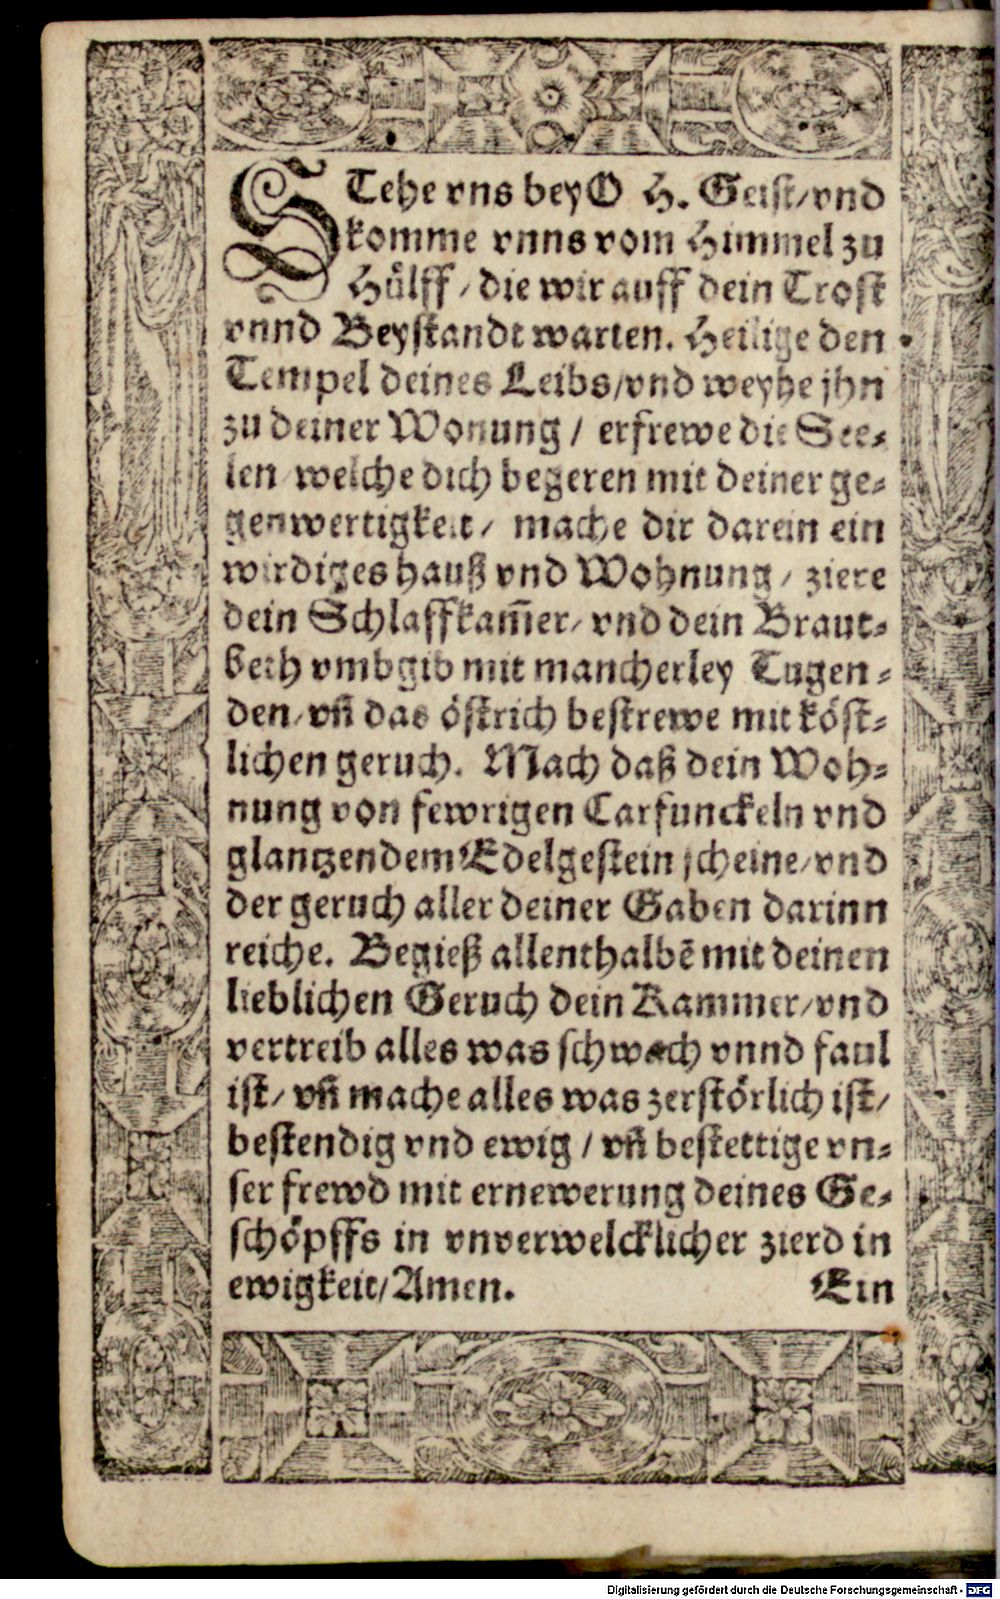 STehe vns bey O H. Geist/vnd
komme vnns vom Himmel zu
Hülff/die wir auff dein Trost
vnnd Beystandt warten. Heilige den
Tempel deines Leibs/vnd weyhe jhn
zu deiner Wonung/ erfrewe die See-
len welche dich begeren mit deiner ge-
genwertigkeit/ mache dir darein ein
wirdiges hauß vnd Wohnung/ ziere
dein Schlaffkam̄er/ vnd dein Braut-
beth vmbgib mit mancherley Tugen-
den/vn̄ das östrich bestrewe mit köst-
lichen geruch. Mach daß dein Woh-
nung von fewrigen Carfunckeln vnd
glantzendem Edelgestein scheine/vnd
der geruch aller deiner Gaben darinn
reiche. Begieß allenthalbē mit deinen
lieblichen Geruch dein Kammer/vnd
vertreib alles was schwach vnnd faul
ist/ vn̄ mache alles was zerstörlich ist/
bestendig vnd ewig/ vn̄ bestettige vn-
ser frewd mit ernewerung deines Ge-
schöpffs in vnverwelcklicher zierd in
ewigkeit/Amen. Ein
Digitalisierung gefördert durch die Deutsche Forschungsgemeinschaft - DFG